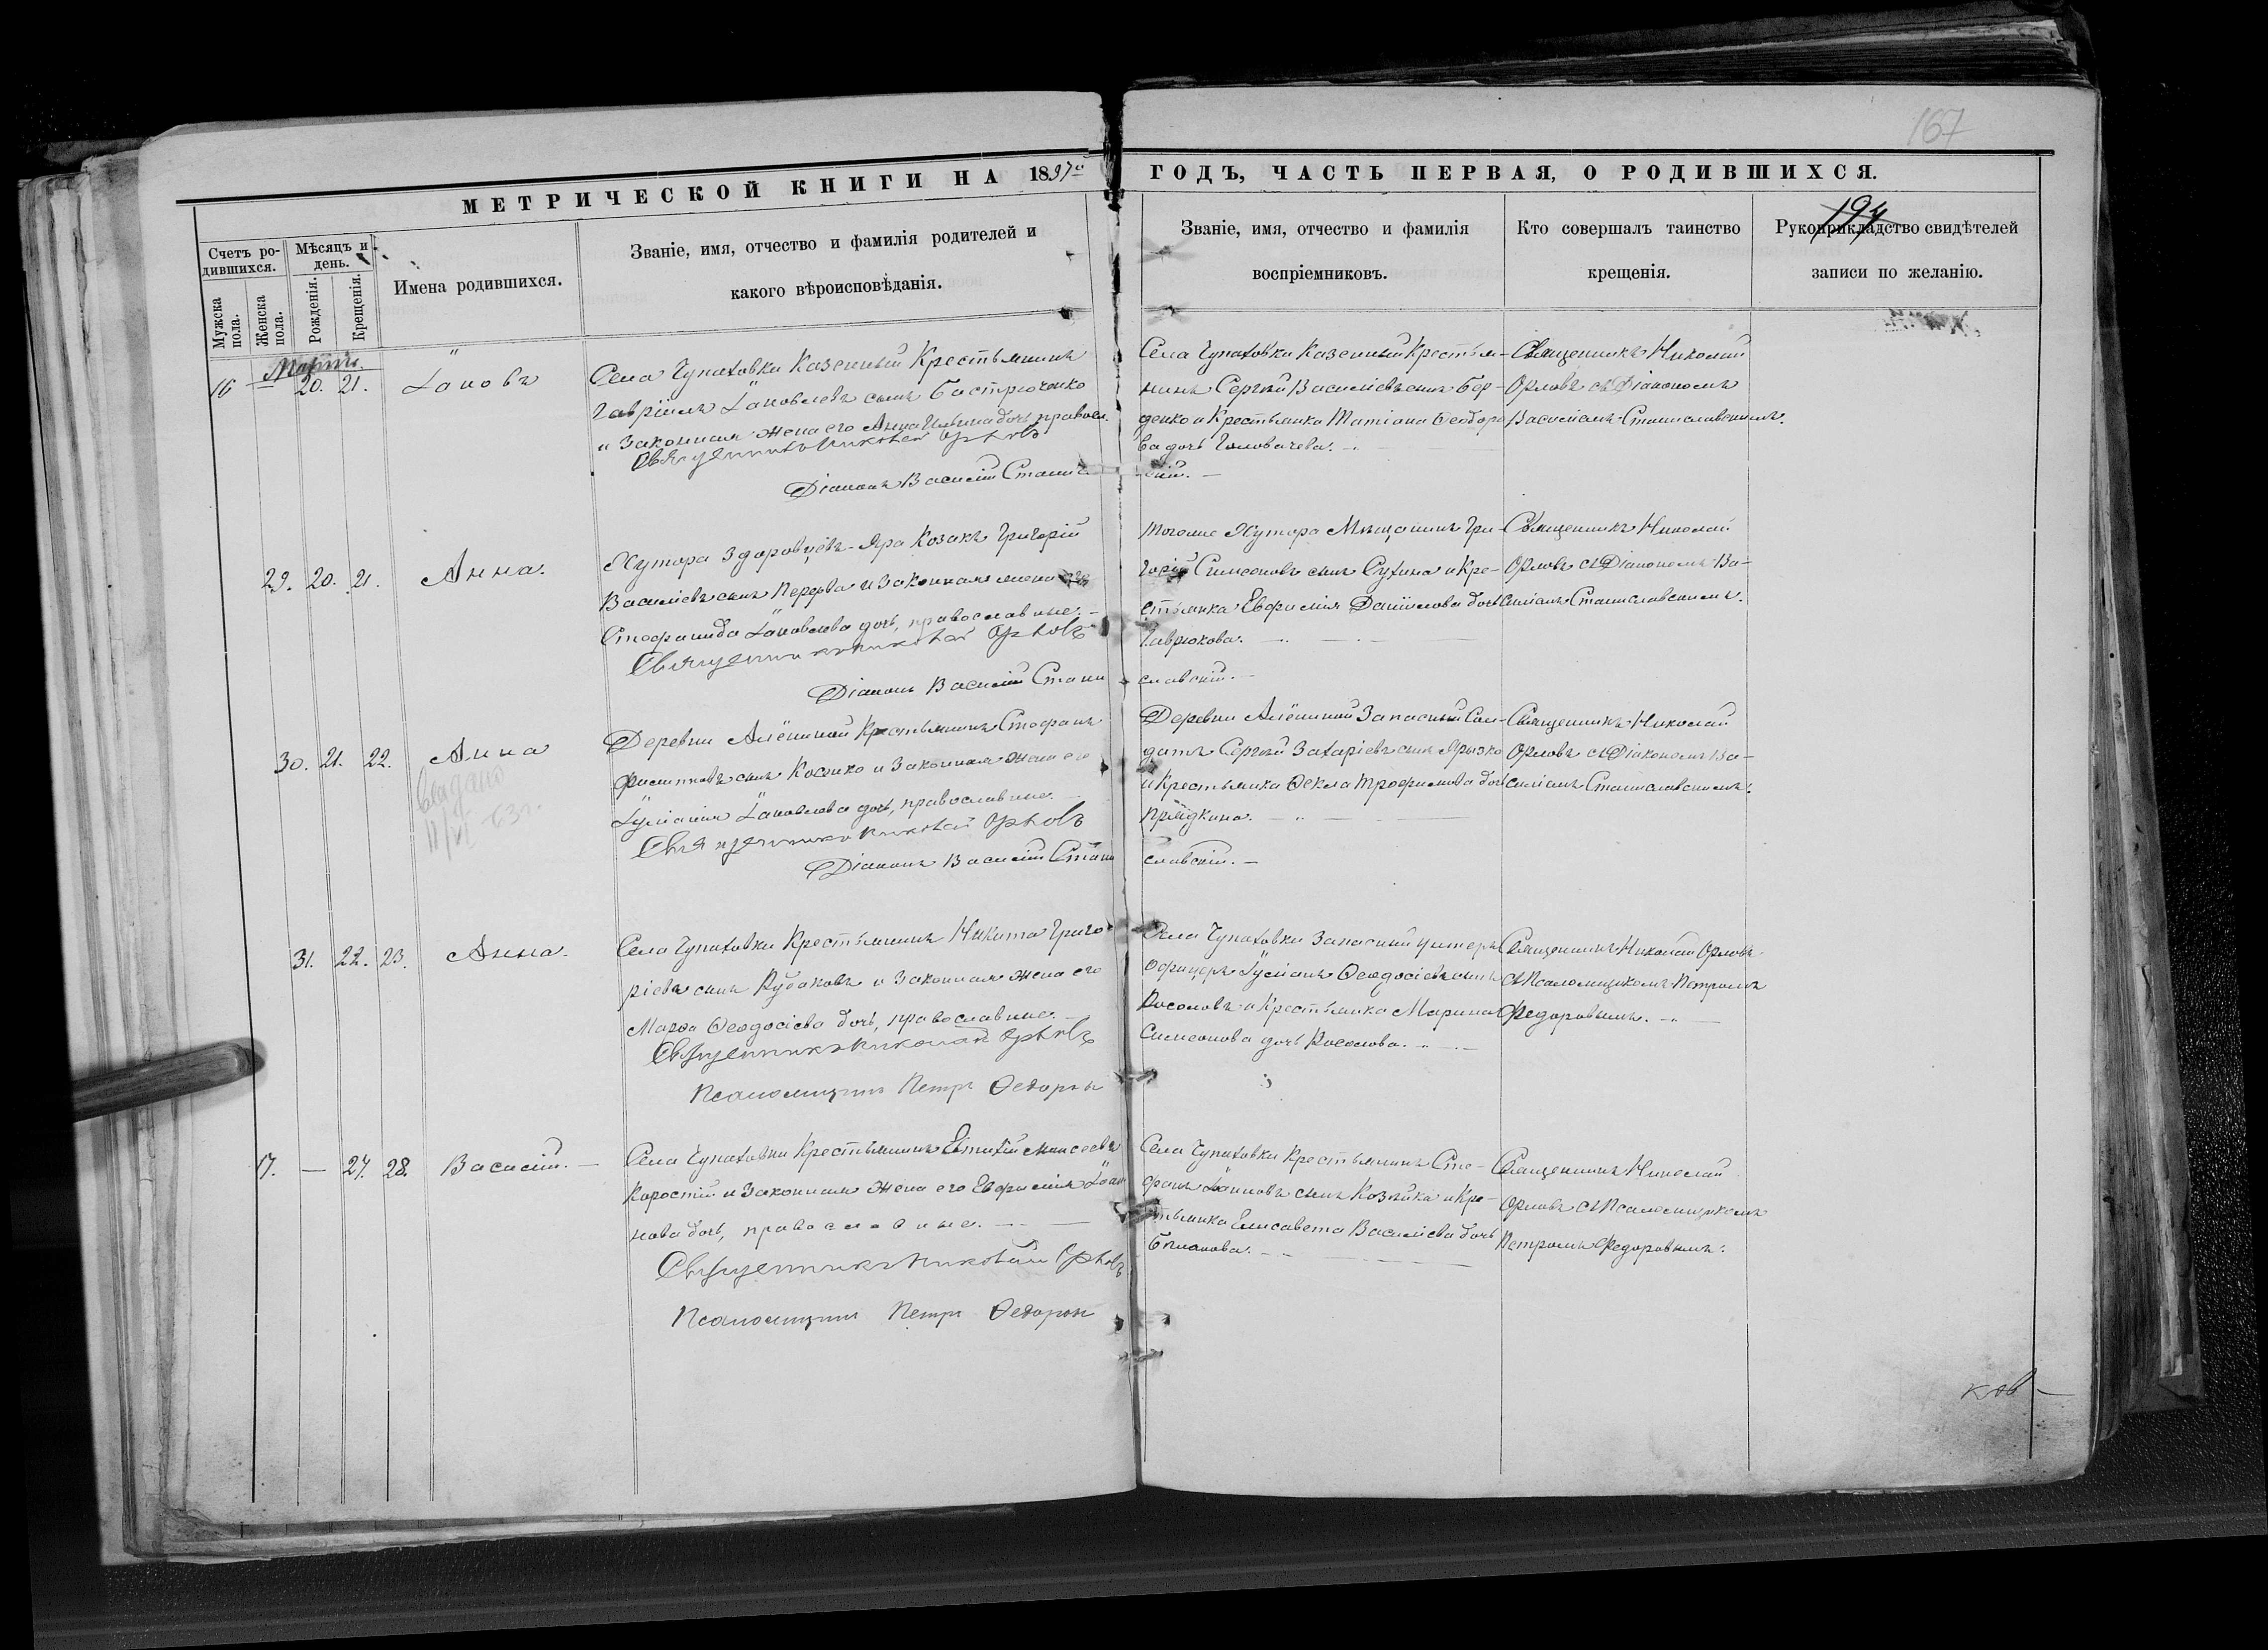 167
МЕТРИЧЕСКОЙ КНИГИ НА 1897й
ГОДЪ, ЧАСТЬ ПЕРВАЯ, О РОДИВШИХСЯ.
194
Счетъ родившихся.
Мужска пола.
Женска пола.
Мѣсяцъ и день.
Рожденія.
Крещенія.
Имена родившихся.
Званіе, имя, отчество и фамилія родителей и
какого вѣроисповѣданія.
Званіе, имя, отчество и фамилія
воспріемниковъ.
Кто совершалъ таинство
крещенія.
Рукоприкладство свидѣтелей
записи по желанію.
Мартъ.
16 — 20. 21.
Іаковъ
Села Чупаховки Казенный Крестьянинъ
Гавріилъ Іаковлевъ сынъ Бастрюченко
и Законная жена его Анна Ильина дочь, правосл.
Священникъ Николай Орловъ
Діаконъ Василій Станис
Села Чупаховки Казенный Крестья-
нинъ Сергѣй Василіевъ сынъ Бер-
денко и Крестьянка Татіана Ѳеодоро
ва дочь Головачева. —
скій. —
Священникъ Николай
Орловъ съ Діакономъ
Василіемъ Станиславскимъ.
29. 20. 21.
Анна.
Хутора Здоровцевъ-Яра Козакъ Григорій
Василіевъ сынъ Перерва и Законная жена его
Стефанида Іаковлева дочь, православные. —
Священникъ Николай Орловъ
Діаконъ Василій Стани
Тогоже Хутора Мѣщанинъ Гри-
горій Симеоновъ сынъ Сухина и Кре-
стьянка Евфимія Даніилова дочь
Гаврюкова. —
славскій. —
Священникъ Николай
Орловъ съ Діакономъ Ва-
силіемъ Станиславскимъ.
30. 21. 22.
Анна
Выдано
11/VI 63г.
Деревни Алёшиной Крестьянинъ Стефанъ
Филипповъ сынъ Косенко и Законная жена его
Іуліанія Іаковлева дочь, православные. —
Священникъ Николай Орловъ
Діаконъ Василій Стани
Деревни Алёшиной Запасный Сол-
датъ Сергѣй Захаріевъ сынъ Ярызко
и Крестьянка Ѳекла Трофимова дочь
Прядкина. —
славскій. —
Священникъ Николай
Орловъ съ Діакономъ Ва-
силіемъ Станиславскимъ.
31. 22. 23.
Анна.
Села Чупаховки Крестьянинъ Никита Григо
ріевъ сынъ Рубаковъ и Законная жена его
Марѳа Ѳеодосіева дочь, православные. —
Священникъ Николай Орловъ
Псаломщикъ Петръ Ѳедоровъ
Села Чупаховки Запасный унтеръ
офицеръ Іуліанъ Ѳеодосіевъ сынъ
Косоловъ и Крестьянка Марина
Симеонова дочь Косолова. —
Священникъ Николай Орловъ
съ Псаломщикомъ Петромъ
Федоровымъ. —
17. — 27. 28.
Василій. —
Села Чупаховки Крестьянинъ Евтихій Моисеевъ
Коростій и Законная жена его Евфимія Іоан
нова дочь, православные. —
Священникъ Николай Орловъ
Псаломщикъ Петръ Ѳедоровъ
Села Чупаховки Крестьянинъ Сте-
фанъ Іоанновъ сынъ Козейка и Кре-
стьянка Елисавета Василіева дочь
Священникъ Николай
Орловъ съ Псаломщикомъ
Петромъ Федоровымъ.
ков —